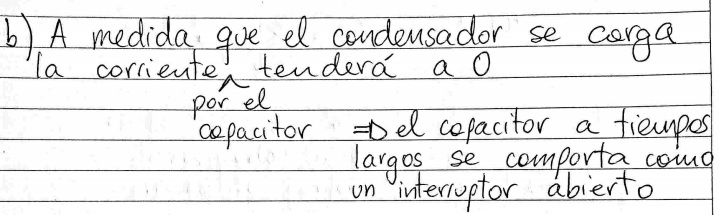 b) A medida que el condensador se carga
la corriente ^ tenderá a 0
por el
capacitor ⇒ el capacitor a tiempos
largos se comporta como
un interruptor abierto